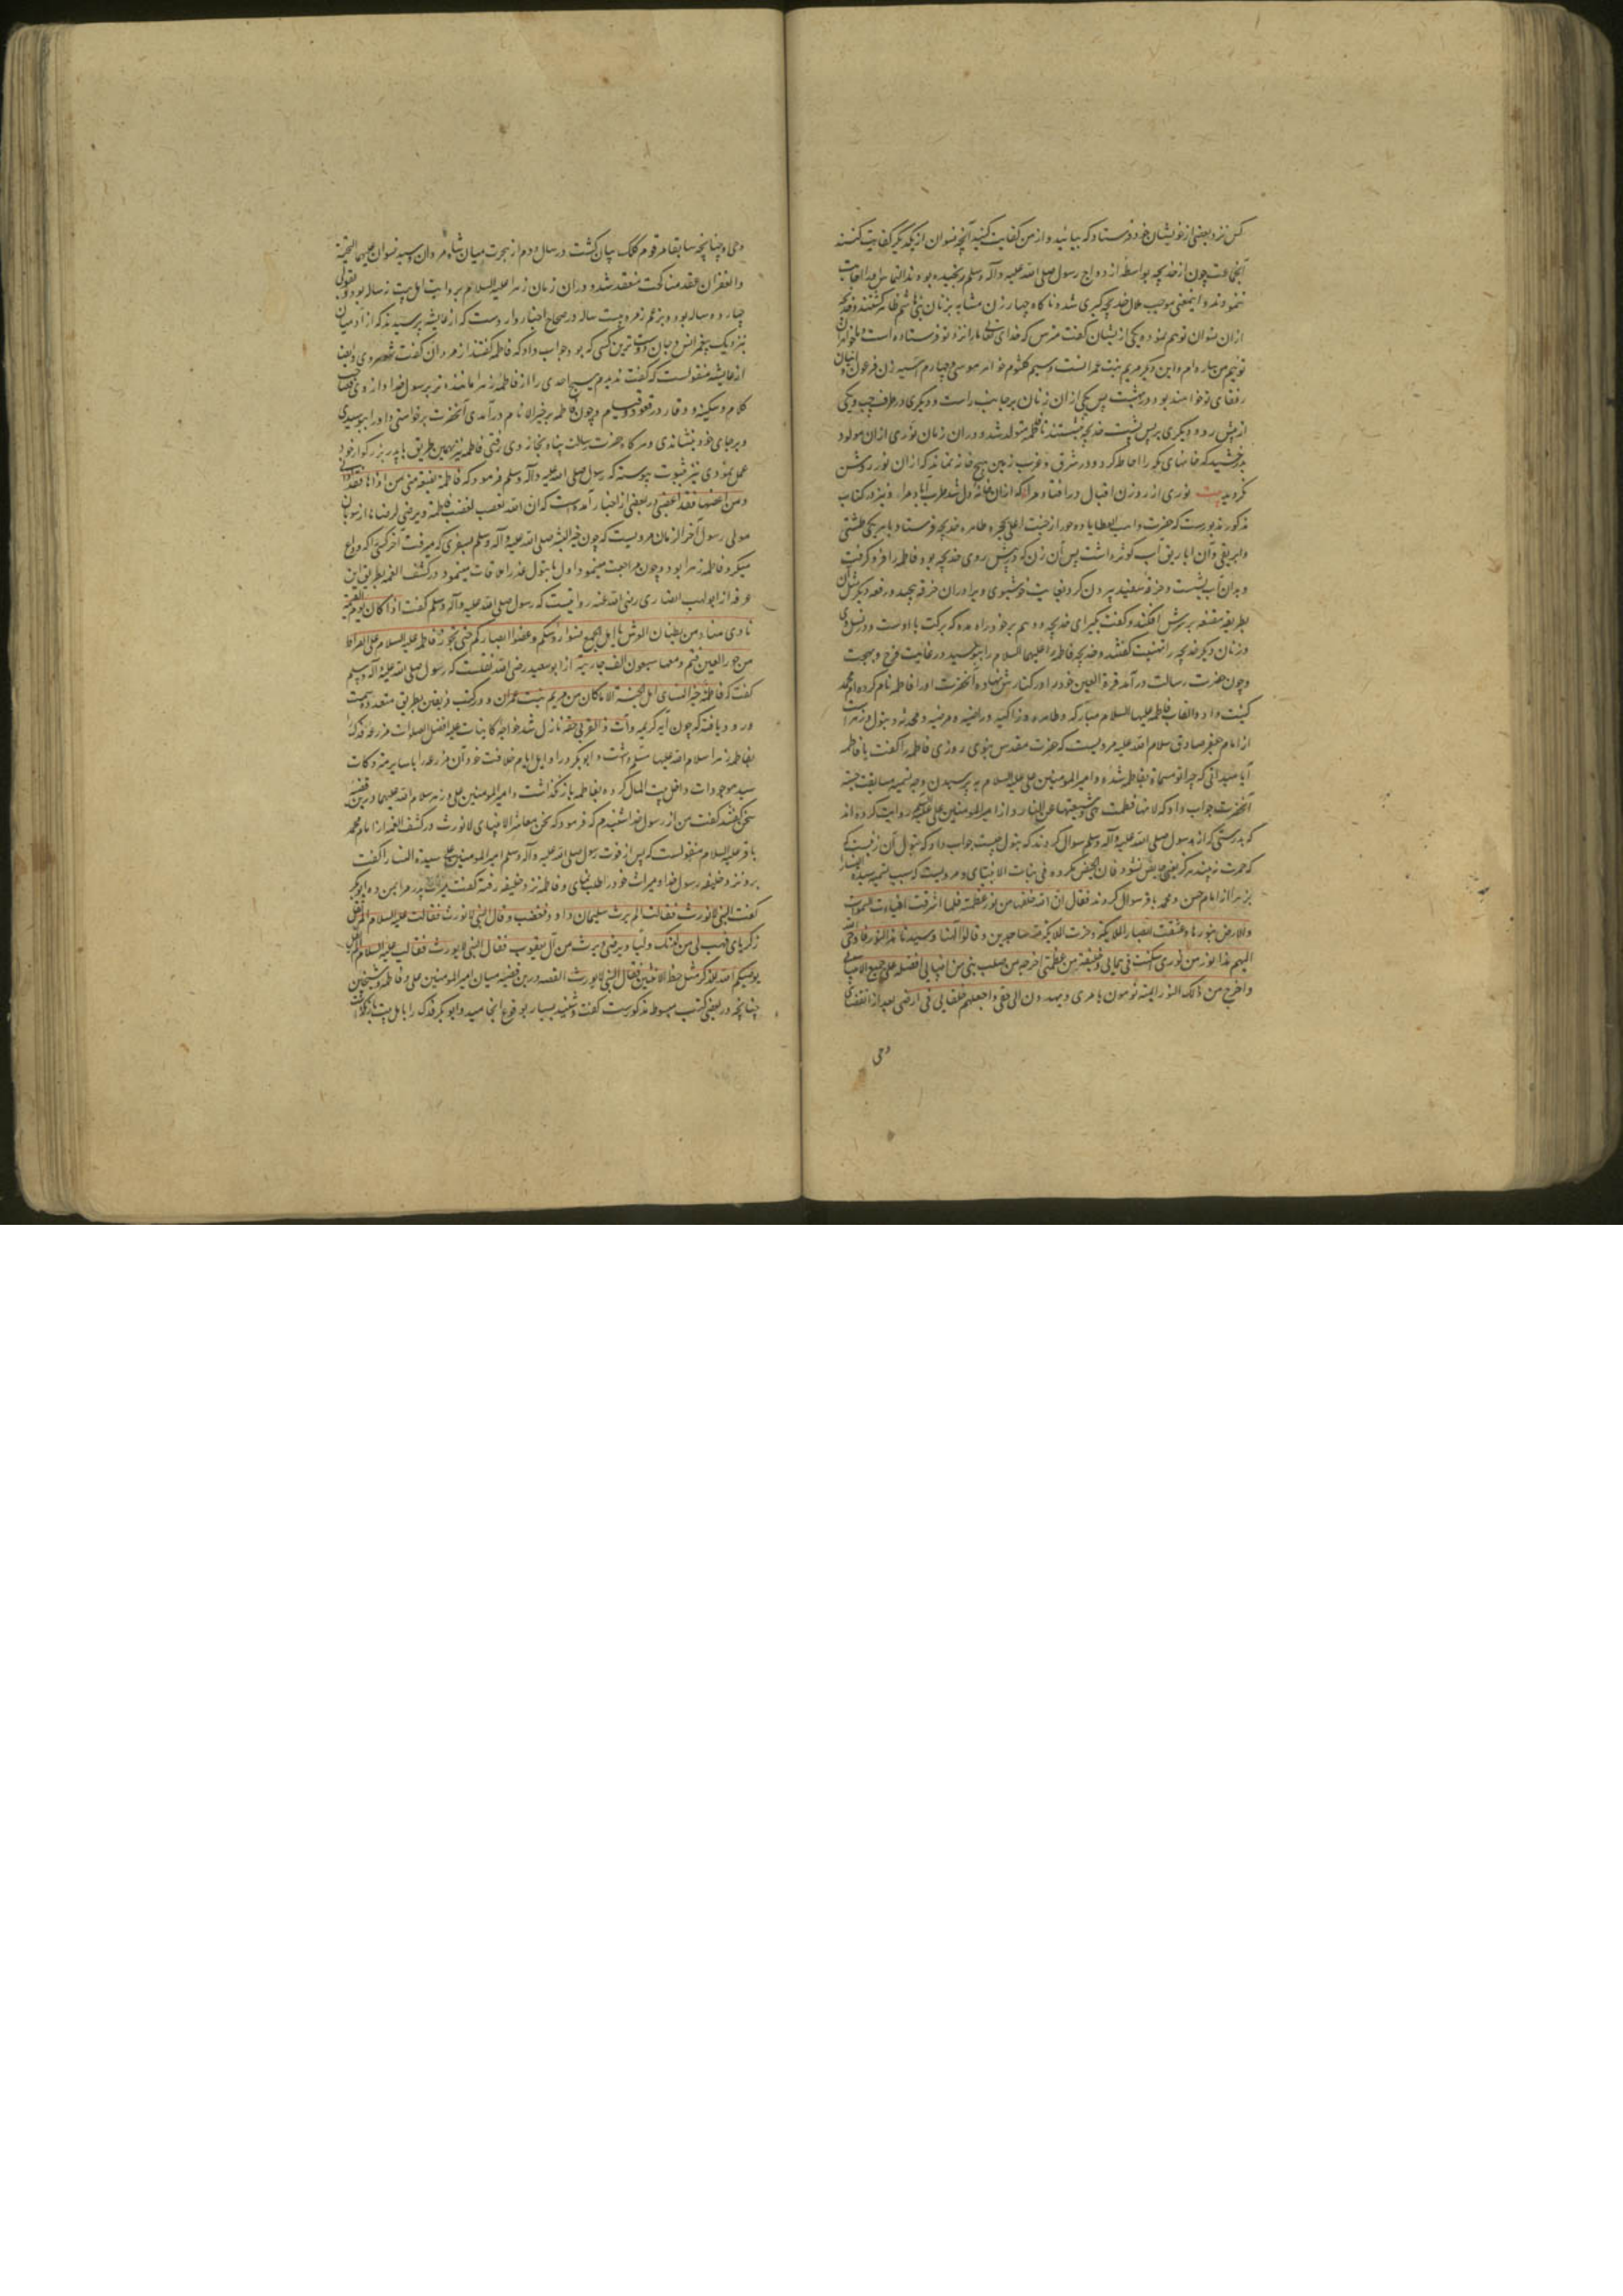 کس نزد بعضی از خویشان خود فرستاد که بیائید و از من کفایت کنید آنچه نسوان از یکدیگر کفایت کنند
آن جماعت چون از خدیجه بواسطه ازدواج رسول صلی الله علیه وآله وسلم رنجیده بودند التماس او را اجابت
ننمودند و اینمعنی موجب ملال خدیجه کبری شده ناگاه چهار زن مشابه بزنان بنی هاشم ظاهر گشتند و خدیجه
ازان نسوان توهم نموده یکی ازیشان گفت مترس که خدای تعالی ما را نزد تو فرستاده است و ما خواهران
توییم من ساره ام و این دیگر مریم بنت عمرانست وسیم کلثوم خواهر موسی و چهارم آسیه زن فرعون و اینان
رفقای تو خواهند بود در بهشت پس یکی ازان زنان بر جانب راست و دیگری در طرف چپ و یکی
از پیش رو و دیگری بر پس پشت خدیجه بنشستند تا فاطمه متولد شد و دران زمان نوری ازان مولود
بدرخشید که خانهای مکه را احاطه کرد و در شرق و غرب زمین هیچ خانه نماند که ازان نور روشن
نگردید بیت نوری از روزن اقبال درافتاد مرا که ازان خانه دل شد طرب آباد مرا و نیز در کتاب
مذکور مذبورست که حضرت واهب العطایا ده حور از جنت اعلی بحجره طاهره خدیجه فرستاد با هر یکی طشتی
وابریقی و آن اباریق آب کوثر داشت پس آن زن که در پیش روی خدیجه بود فاطمه را فرو گرفت
و بدان آب بشست و خرقه سفید بیرون کرد بغایت خوشبوی و ویرا دران خرقه پیچید و رقعه دیگر مثل آن
بطریقه مقنعه بر سرش افکند و گفت بگیر ای خدیجه
و زنان دیگر خدیجه را تهنیت گفتند و خدیجه فاطمه علیها السلام را ببوسید در غایت فرح و بهجت
و چون حضرت رسالت درآمد قرة العین خود را در کنارش نهاد و آنحضرت او را فاطمه نام کرده ام محمد
کنیت داد و القاب فاطمه علیها السلام مبارکه و طاهره و زاکیه و راضیه و مرضیه و محدثه و بتول و زهراست
از امام جعفر صادق سلام الله علیه مرویست که حضرت مقدس نبوی روزی فاطمه را گفت یا فاطمه
آیا میدانی که چرا تو مسماة بفاطمه شدۀ و امیر المومنین علی علیه السلام به پرسیدن وجه تسمیه مسابقت جسته
آنحضرت جواب داد که لانها فطمت هی و شیعتها من النار و از امیر المومنین علی روایت کرده اند
که بدرستی که از رسول صلی الله علیه وآله وسلم سوال کردند که بتول چیست جواب داد که بتول آن زنیست
که حمرت نبیند هرگز یعنی حایض نشود فان الحیض مکروه فی بنات الانبیای و مرویست که سبب تسمیه سیدة النسا را
بزهرا از امام حسن و محمد باقر سوال کردند فقال ان الله خلقها من نور عظمته فلما اشرقت اضاءت السموات
والارض بنورها وغشیت ابصار الملایکة و خرت الملایکة لله ساجدین و قالوا الهنا و سیدنا ما هذا النور فاوحی الله
الیهم هذا نور من نوری سکنته فی سمائی وخلقته من عظمتی اخرجه من صلب نبی من انبیایی افضله علی جمیع الانبیا
واخرج من ذلک النور ایمة یقومون بامری و یهدون الی حقی و اجعلهم خلفایی فی ارضی بعد از انقضای
وحی
وحی و چنانچه سابقا مرقوم کلک بیان گشت در سال دوم از هجرت میان شاه مردان و سیده نسوان علیهما التحیة
والغفران عقد مناکحت منعقد شد و دران زمان زهرا علیه السلام بروایت اهل بیت نه ساله بود و بقولی
چهارده ساله بود و بزعم زمره بیست ساله در صحاح اخبار وارد است که از عایشه پرسیدند که از آدمیان
نزدیک پیغمبر انس و جان دوست ترین کسی که بود جواب داد که فاطمه گفتند از مردان گفت شوهر وی و ایضا
از عایشه منقولست که گفت ندیدم هیچ احدی را از فاطمه زهرا ماننده تر برسول خدا از وی در
کلام و سکینه و وقار در قعود و قیام و چون فاطمه بر خیر الانام درآمدی آنحضرت برخاستی و او را ببوسیدی
و برجای خود بنشاندی و هرگاه حضرت رسالت پناه بخانه وی رفتی فاطمه نیز بهمین طریق با پدر بزرگوار خود
عمل نمودی و نیز بثبوت پیوسته که رسول صلی الله علیه وآله وسلم فرمود که فاطمة بضعة منی من اذاها فقد اذانی
ومن اغضبها فقد اغضبنی در بعضی از اخبار آمده است که ان الله یغضب لغضب فاطمة ویرضی لرضاها از ثوبان
مولی رسول آخر الزمان مرویست که چون خیر البشر صلی الله علیه وآله وسلم بسفری که میرفت آخر کسی که وداع
میکرد فاطمه زهرا بود و چون مراجعت مینمود اول با بتول عذرا ملاقات مینمود در کشف الغمه بطریق این
عرفه از ابو ایوب انصاری رضی الله عنه روایتست که رسول صلی الله علیه وآله وسلم گفت اذا کان یوم القیمة
نادی مناد من بطنان العرش یا اهل الجمع نکسوا رؤسکم وغضوا ابصارکم حتی تجوز فاطمه علیه السلام علی الصراط
من حور العین فتمر ومعها سبعون الف جاریة از ابو سعید رضی الله نقلست که رسول صلی الله علیه وآله وسلم
گفت که فاطمة خیر النسای اهل الجنة الا ما کان من مریم بنت عمران و در کتب فریقین بطریق متعدده بصحت
ورود یافته که چون آیه کریمه وآت ذا القربی حقه نازل شد خواجه کاینات علیه افضل الصلوات مزرعه فدک را
بفاطمه زهرا سلام الله علیها مسلم داشت و ابوبکر در اوایل ایام خلافت خود آن مزرعه را با سایر متروکات
سید موجودات داخل بیت المال کرده بفاطمه باز نگذاشت و امیر المومنین علی و زهرا سلام الله علیهما درین قضیه
سخن گفتند گفت من از رسول خدا شنیدم که فرمود که نحن معاشر الانبیای لانورث در کشف الغمه از امام محمد
باقر علیه السلام منقولست که پس از فوت رسول صلی الله علیه وآله وسلم امیر المومنین علی سیدة النسا را گفت
برو نزد خلیفه رسول خدا و میراث خود را طلب نمای و فاطمه نزد خلیفه رفته گفت میراث پدر مرا بمن ده ابوبکر
گفت النبی لایورث فقالت الم یرث سلیمان داود فغضب وقال النبی لایورث فقالت علیه السلام الم یقل
زکریای فهب لی من لدنک ولیا ویرثنی ویرث من آل یعقوب فقال النبی لایورث فقالت علیه السلام الم یقل
یوصیکم الله للذکر مثل حظ الانثیین فقال النبی لایورث القصه درین قضیه میان امیر المومنین علی و فاطمه و شیخین
چنانچه در بعضی کتب مبسوط مذکورست گفت و شنید بسیار بوقوع انجامید و ابوبکر فدک را باهل بیت باز نگذاشت